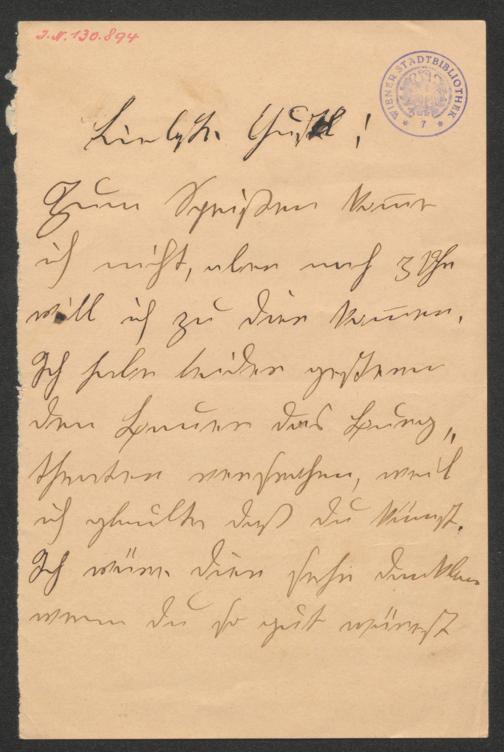 J.N.130.894
WIENER STADTBIBLIOTHEK
7
Liebste Gustl!
Zum Speißen kom̅e
ich nicht, aber nach 3 Uhr
will ich zu dir kom̅en.
Ich habe leider gestern
den Bauer das Burg„
theater versprochen, weil
ich glaubte daß du kämst.
Ich wäre dir sehr dankbar
wenn du so gut wärst